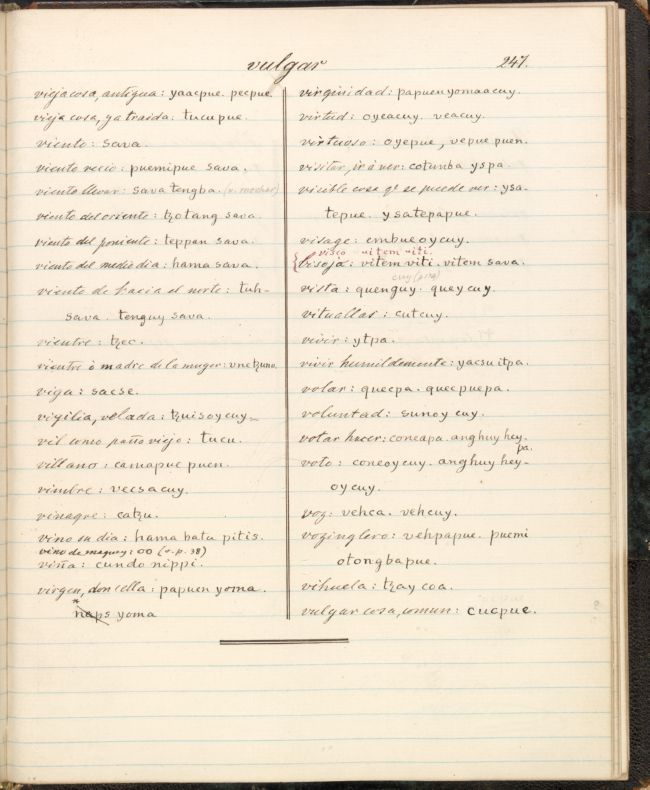 vulgar
247.
vieja cosa, antigua: yaacpue. pecpue.
vieja cosa, ya traida: tucupue.
viento: sava.
viento recio: puemipue sava.
viento llevar: sava tengba.
viento del oriente: tzotang sava.
viento del poniente: teppan sava.
viento del medio dia: hama sava.
viento de hacia el norte: tuh-
sava. tenguy sava.
vientre: tzec.
vientre ò madre de la muger: unetzuno.
viga: sacse.
vigilia, velada: tzuisoycuy
vil como paño viejo: tucu.
villano: camapue puen.
vimbre: vecsacuy.
vinagre: catzu.
vino su dia: hama batu pitis.
vino de maguey: oo (v. p. 38)
viña: cundo nippi.
virgen, doncella: papuen yoma.
* naps yoma
virginidad: papuenyomaacuy.
virtud: oyeacuy. veacuy.
virtuoso: oyepue, vepue puen.
visitar, ir à ver: cotunba yspa.
visible cosa qe se puede ver: ysa-
tepue. ysatepapue.
visage: embueoycuy.
visco uitem uiti.
bisojo: vitem viti. vitem sava.
vista: quenguy. queycuy.
vituallas: cutcuy.
vivir: ytpa.
vivir humildemente: yacsuitpa.
volar: quecpa. quecpuepa.
voluntad: sunoycuy.
votar hacer: coneapa. anghuy hey-
pa.
voto: coneoycuy. anghuy hey-
oycuy.
voz: vehca. vehcuy.
vozinglero: vehpapue. puemi
otongbapue.
vihuela: tzaycoa.
vulgar cosa, comun: cucpue.